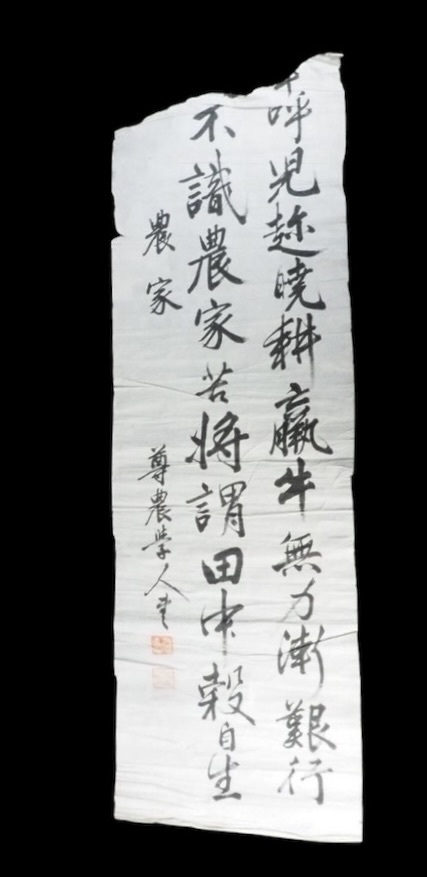 呼兒趂曉耕羸牛無力漸艱行
不識農家苦將謂田中穀自生
農家
尊農學人書